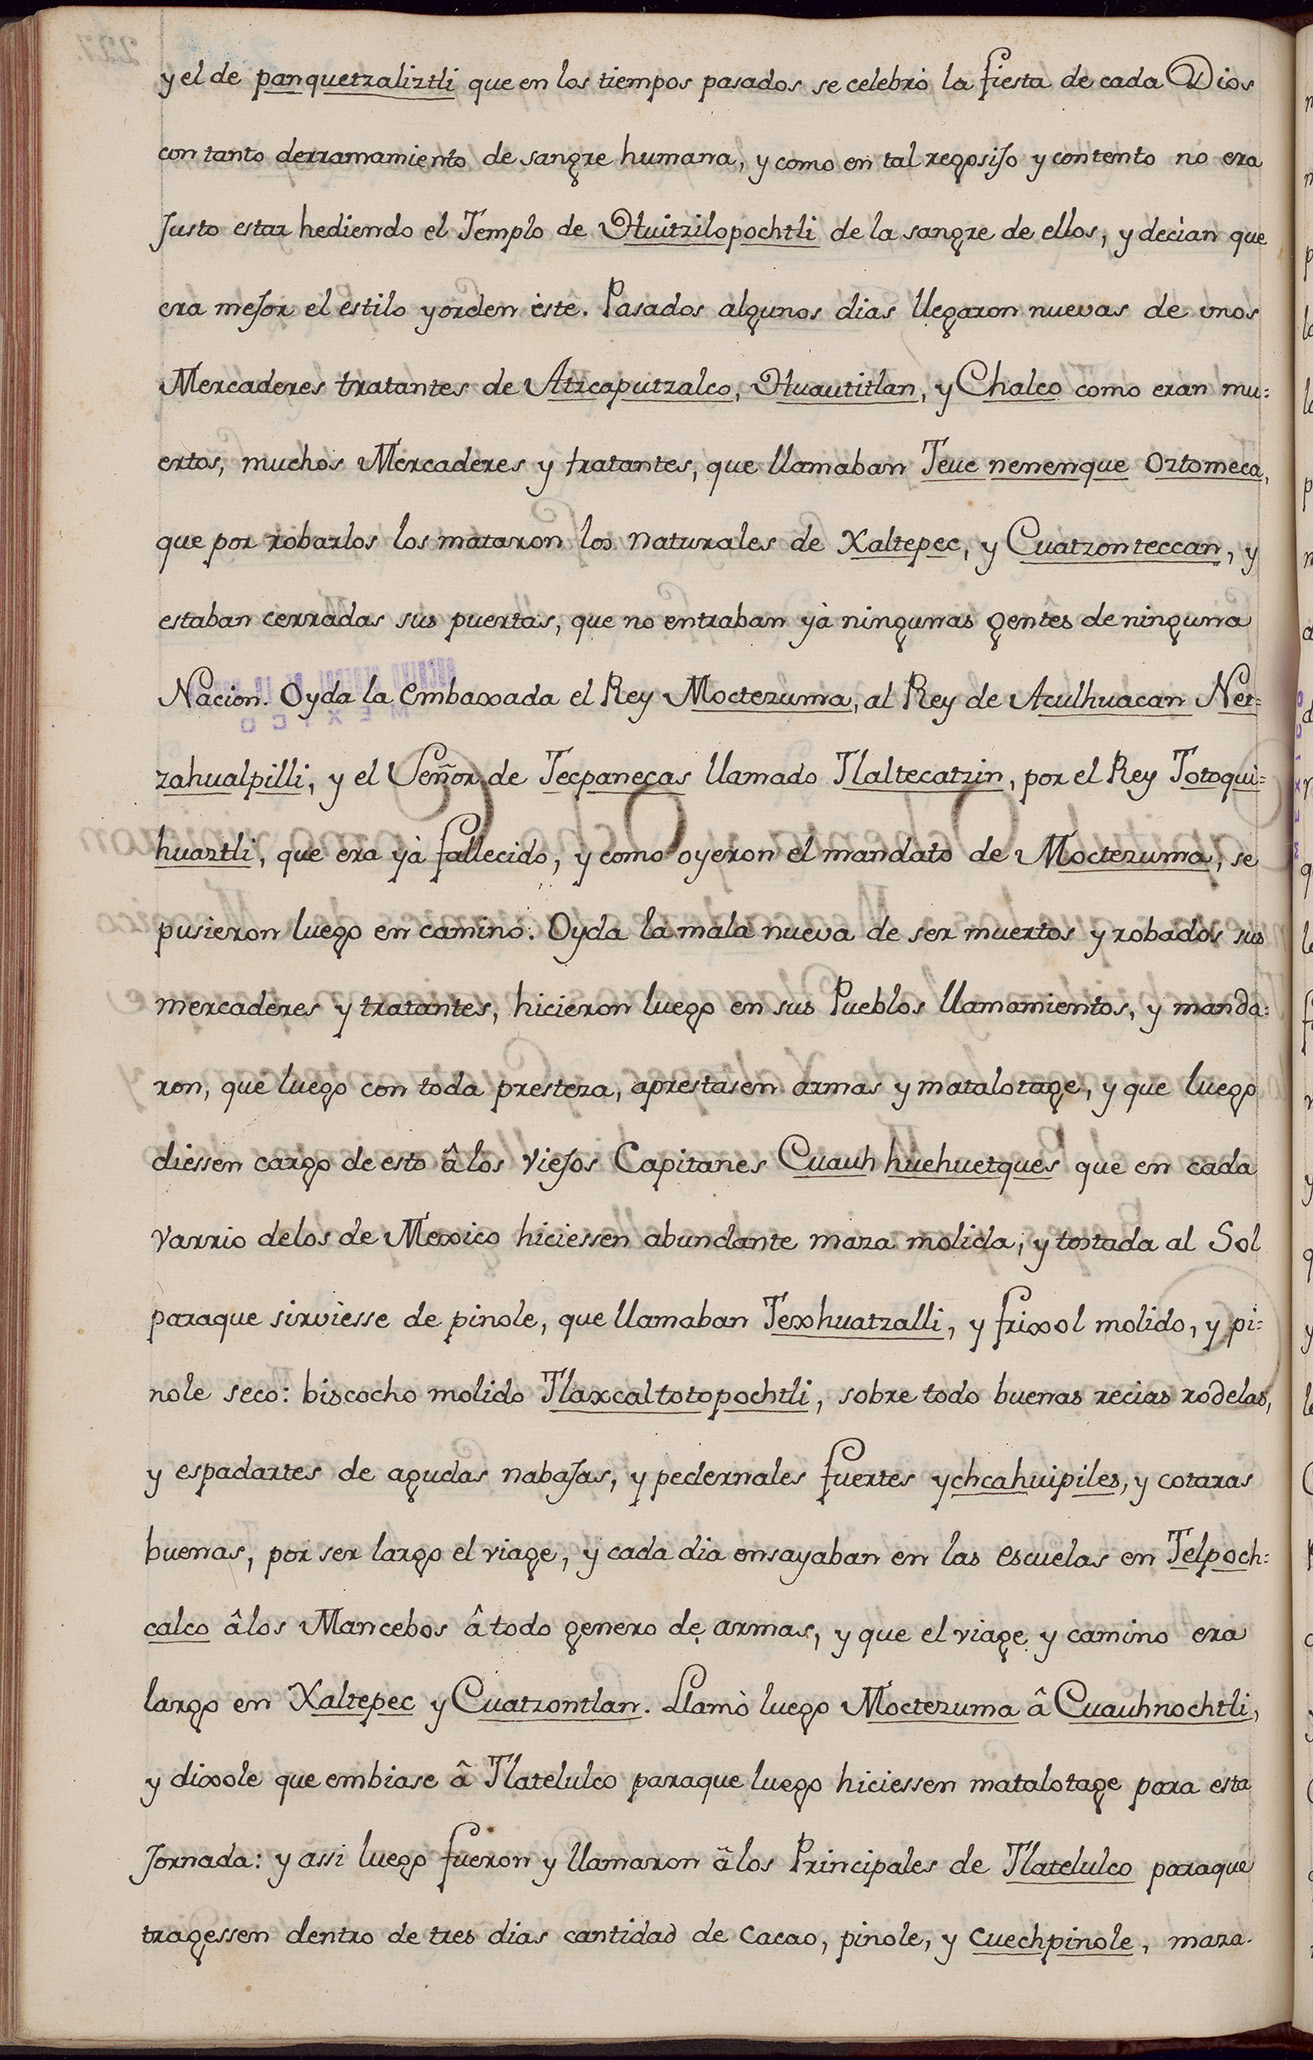 y el de panquetzaliztli que en los tiempos pasados se celebrò la fiesta de cada Dios
con tanto derramamiento de sangre humana, y como en tal regosijo y contento no era
justo estar hediendo el Templo de Huitzilopochtli de la sangre de ellos, y decian que
era mejor el estilo y orden èste. Pasados algunos dias llegaron nuevas de vnos
Mercaderes tratantes de Atzcaputzalco, Huautitlan, y Chalco como eran mu=
ertos, muchos Mercaderes y tratantes, que llamaban Teuc nenenque Oztomeca,
que por robarlos los mataron los naturales de Xaltepec, y Cuatzonteccan, y
estaban cerradas sus puertas, que no entraban yà ningunas gentes de ninguna
Nacion. Oyda la embaxada el Rey Moctezuma, al Rey de Aculhuacan Net=
zahualpilli, y el Señor de Tecpanecas llamado Tlaltecatzin, por el Rey Totoqui=
huaztli, que era yà fallecido, y como oyeron el mandato de Moctezuma, se
pusieron luego en camino. Oyda la mala nueva de ser muertos y robados sus
mercaderes y tratantes, hicieron luego en sus Pueblos llamamientos, y manda=
ron, que luego con toda presteza, aprestasen armas y matalotage, y que luego
diessen cargo de esto â los viejos Capitanes Cuauh huehuetques que en cada
varrio de los de Mexico hiciessen abundante maza molida, y tostada al Sol
paraque sirviesse de pinole, que llamaban Texhuatzalli, y frixol molido, y pi=
nole seco: biscocho molido Tlaxcaltotopochtli, sobre todo buenas recias rodelas,
y espadartes de agudas nabajas, y pedernales fuertes ychcahuipiles, y cotaras
buenas, por ser largo el viage, y cada dia ensayaban en las escuelas en Telpoch=
calco â los Mancebos â todo genero de armas, y que el viage y camino era
largo en Xaltepec y Cuatzontlan. Llamò luego Moctezuma â Cuauhnochtli,
y dixole que embiase â Tlatelulco paraque luego hiciessen matalotage para esta
jornada: y assi luego fueron y llamaron â los Principales de Tlatelulco paraque
tragessen dentro de tres dias cantidad de cacao, pinole, y cuechpinole, maza.